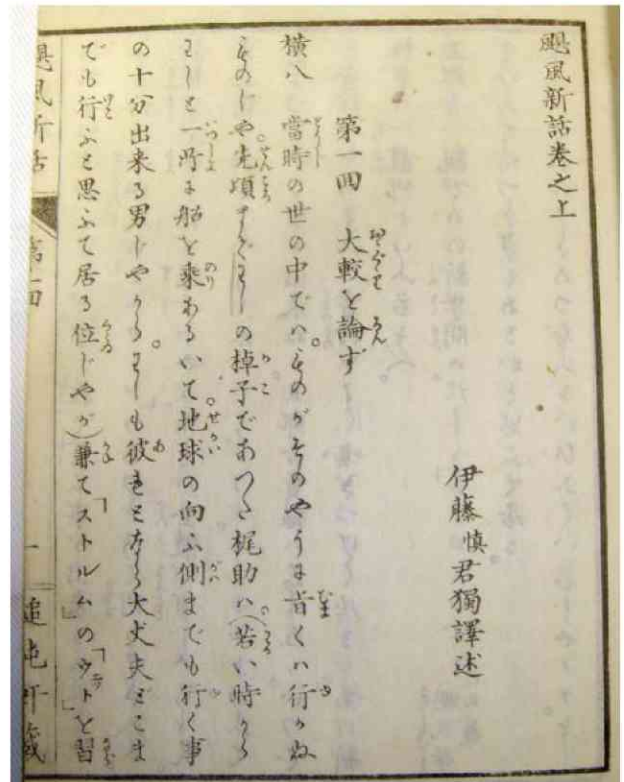 颶風新話巻之上
伊藤慎君獨譯述
第一回 大較を論ず
横八 當時の世の中でハ。ものがそのやうに旨くハ行かぬ
ものじや。先頃まで の掉子であつた梶助ハ(若い時から
一所に船を乗あるいて。地球の向ふ側までも行く事
の十分出来る男じやから。わしも彼 大丈夫どこま
でも行ふと思ふて居る位じやが)兼て「ストルム」の「ウヲト」を習
颶風新話 第一回 一